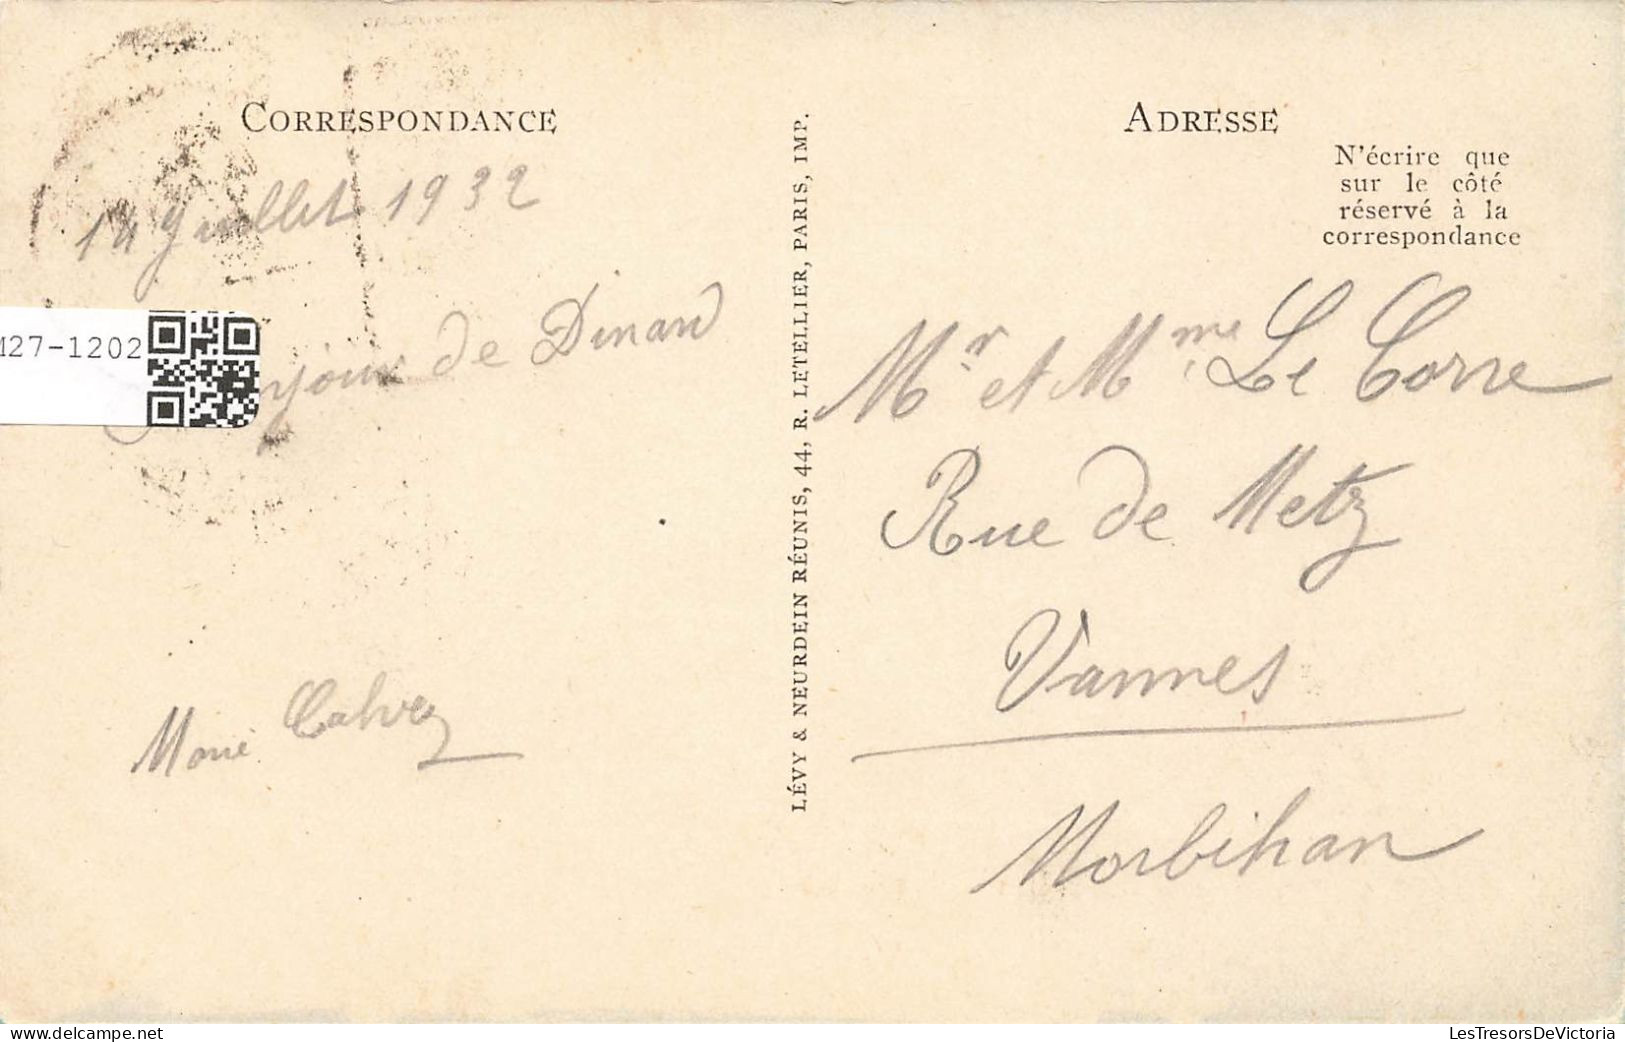 CORRESPONDANCE
14 Juillet 1932
de Dinard
Calvez
LÉVY & NEURDEIN RÉUNIS, 44, R. LETELLIER, PARIS, IMP.
ADRESSE
N'écrire que
sur le côté
réservé à la
correspondance
Mr et Mme Le Corre
Rue de Metz
Vannes
Morbihan
27-1202
delcampe.net
LesTresorsDeVictoria